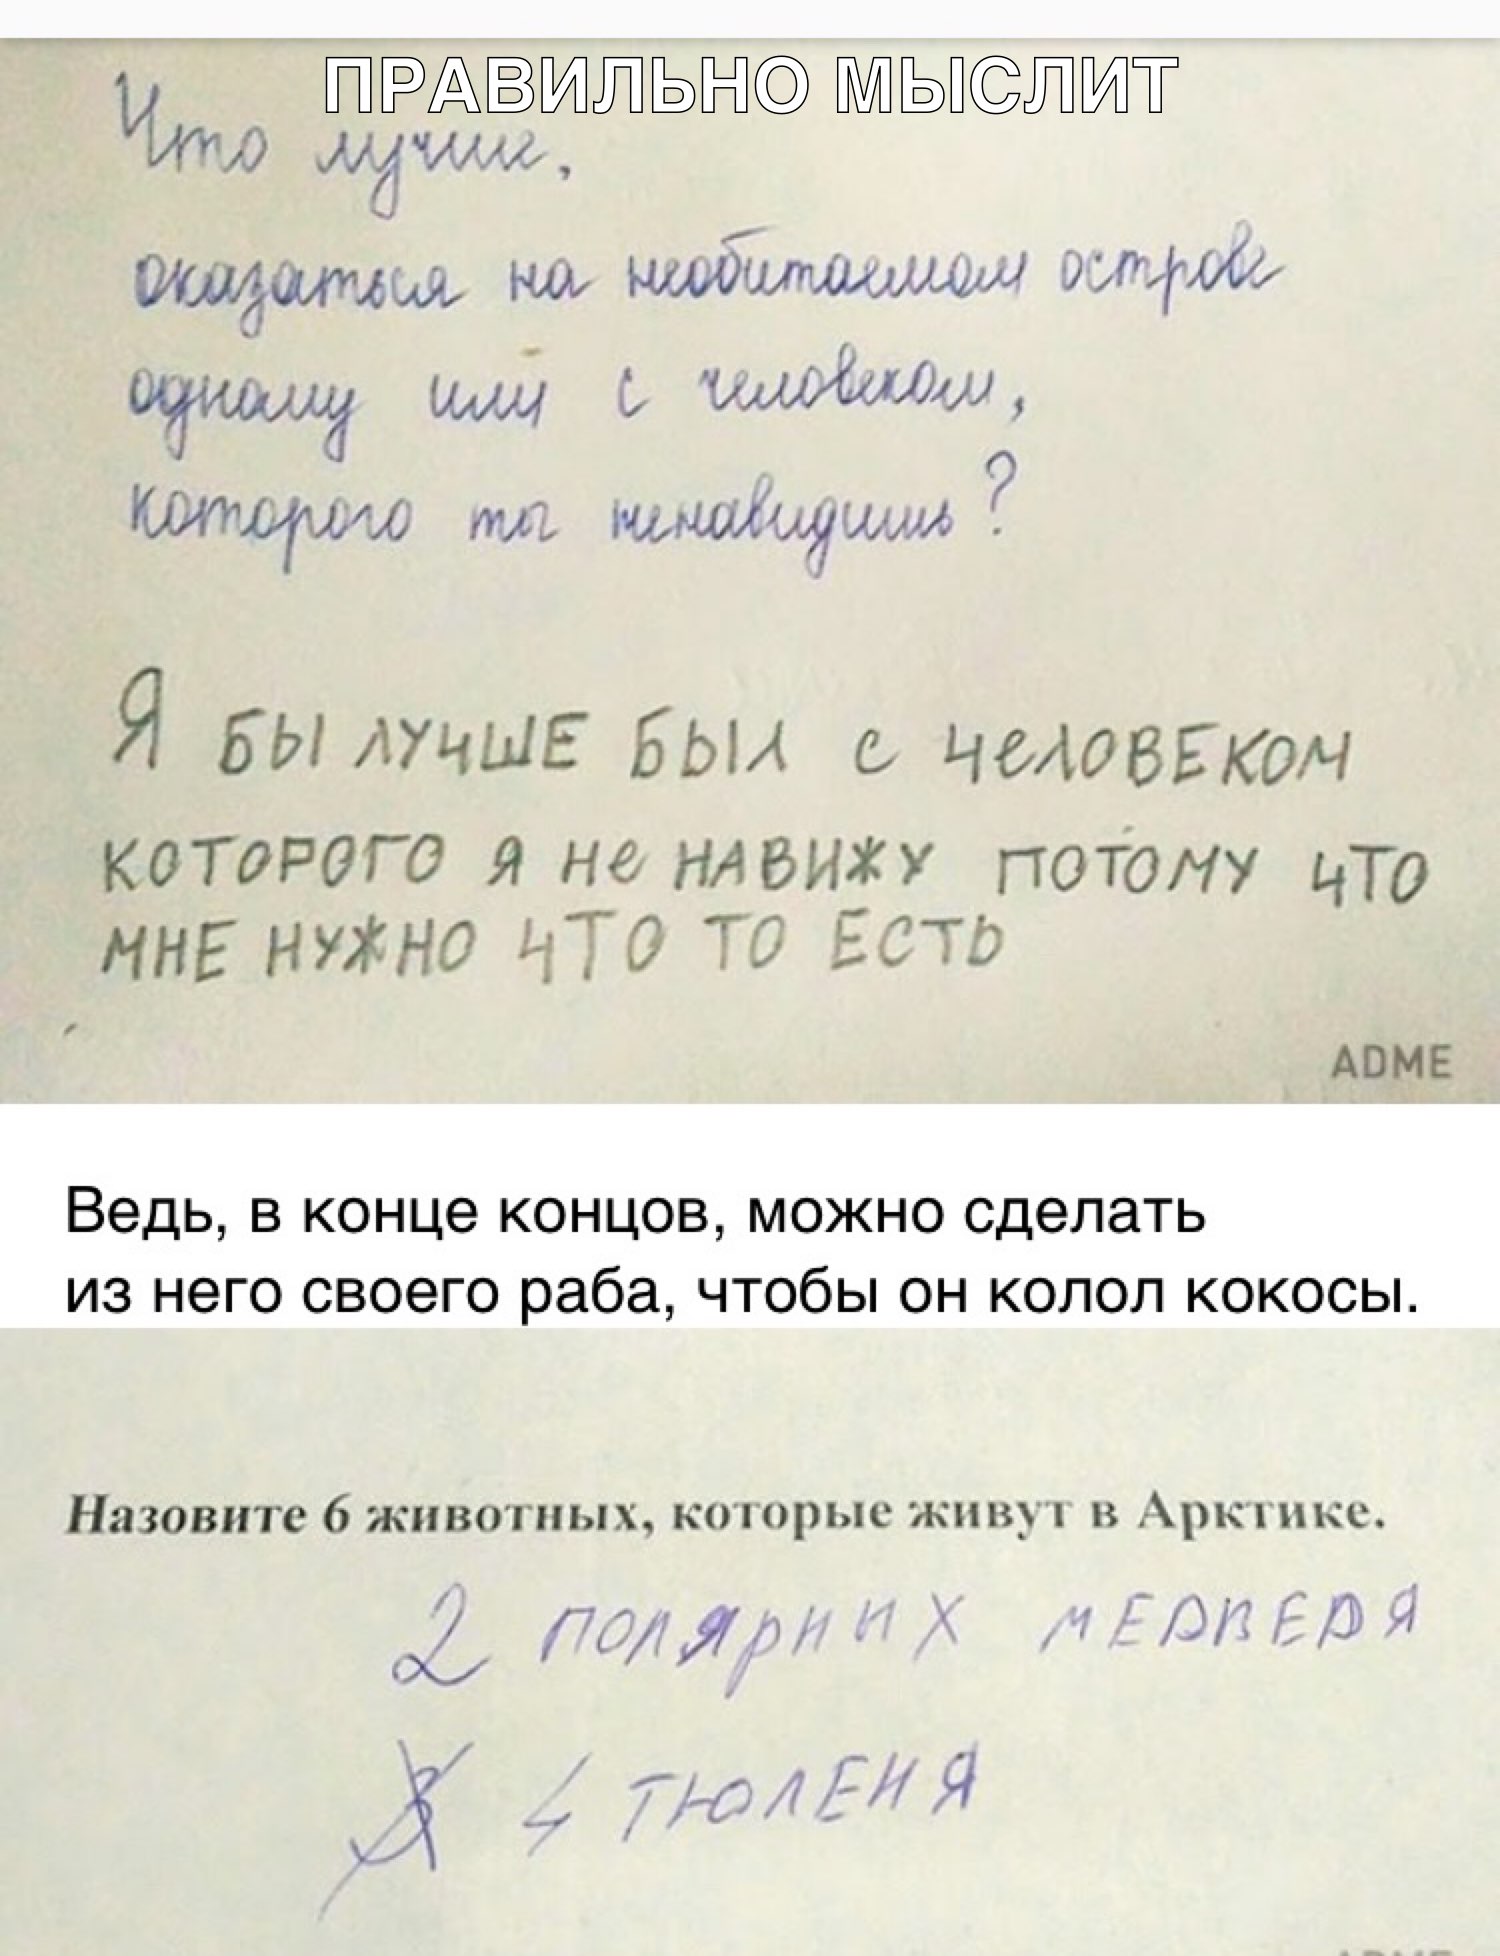 ПРАВИЛЬНО МЫСЛИТ
Что лучше,
оказаться на необитаемом острове
одному или с человеком,
которого ты ненавидишь?
Я БЫ ЛУЧШЕ БЫЛ с человеком
КОТОРОГО Я не НАВИЖУ ПОТОМУ ЧТО
МНЕ НУЖНО ЧТО ТО ЕСТЬ
ADME
Ведь, в конце концов, можно сделать
из него своего раба, чтобы он колол кокосы.
Назовите 6 животных, которые живут в Арктике.
2 ПОЛЯРНЫХ МЕДВЕДЯ
4 ТЮЛЕНЯ